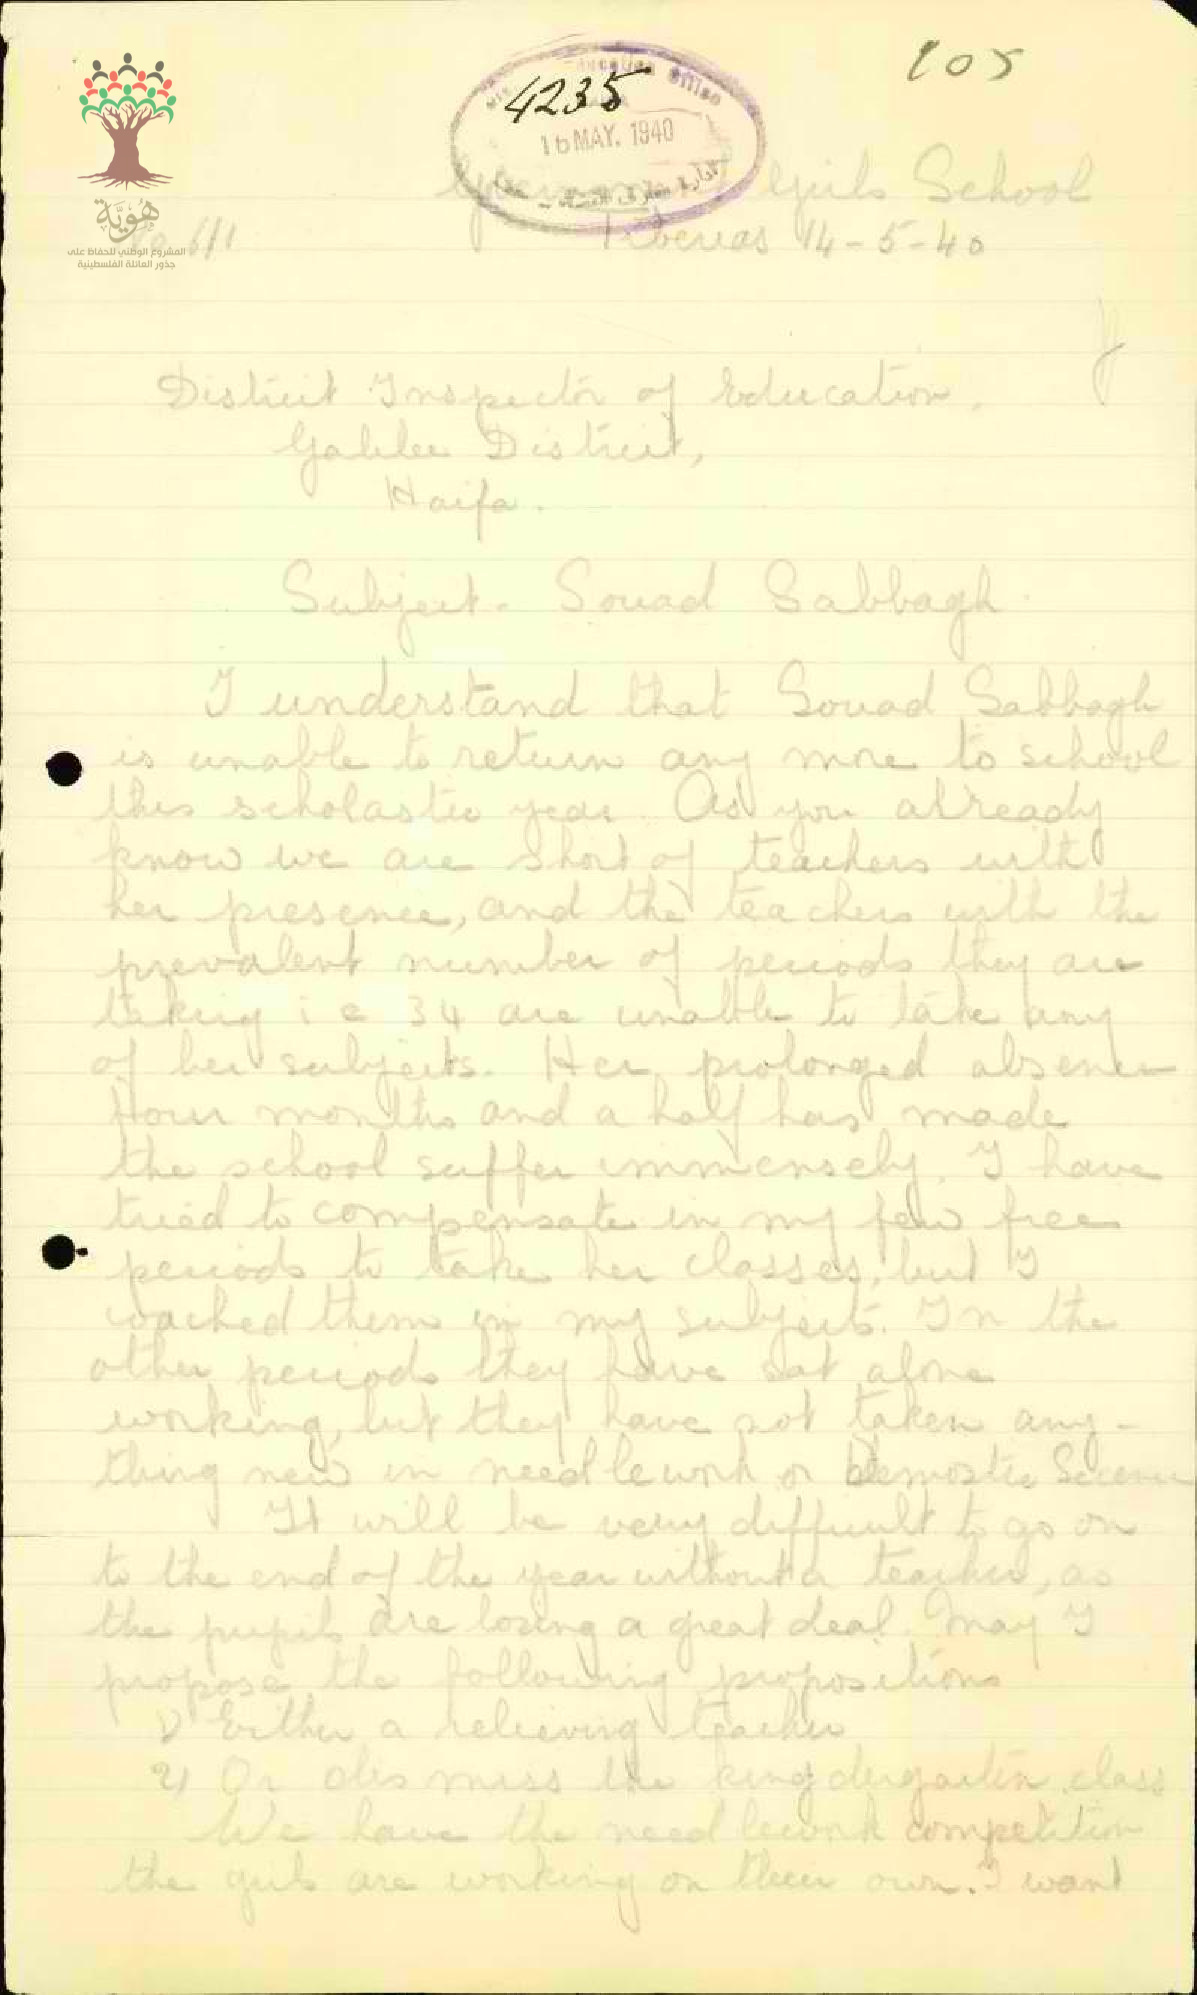 105
Education Office
4235
16 MAY. 1940
Girls School
Tiberias 14-5-40
6/1
هُوِيَّة
المشروع الوطني للحفاظ على
جذور العائلة الفلسطينية
District Inspector of Education,
Galilee District,
Haifa.
Subject. Souad Sabbagh
I understand that Souad Sabbagh
is unable to return any more to school
this scholastic year. As you already
know we are short of teachers with
her presence, and the teachers with the
prevalent number of periods they are
taking i e 34 are unable to take any
of her subjects. Her prolonged absence
four months and a half has made
the school suffer immensely. I have
tried to compensate in my few free
periods to take her classes, but I
coached them in my subjects. In the
other periods they have sat alone
working, but they have not taken any-
thing new in needlework or Demostic Science
It will be very difficult to go on
to the end of the year without a teacher, as
the pupils are losing a great deal. May I
propose the following propositions
1) Either a relieving teacher
2) Or dismiss the kingdergarten class
We have the needlework competition
the girls are working on their own. I want